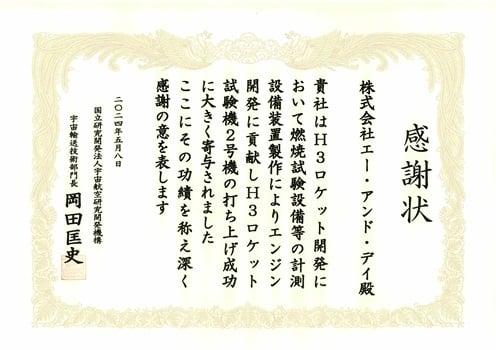 感謝状
株式会社エー・アンド・デイ殿
貴社はＨ３ロケット開発に
おいて燃焼試験設備等の計測
設備装置製作によりエンジン
開発に貢献しＨ３ロケット
試験機２号機の打ち上げ成功
に大きく寄与されました
ここにその功績を称え深く
感謝の意を表します
二〇二四年五月八日
国立研究開発法人宇宙航空研究開発機構
宇宙輸送技術部門長 岡田匡史